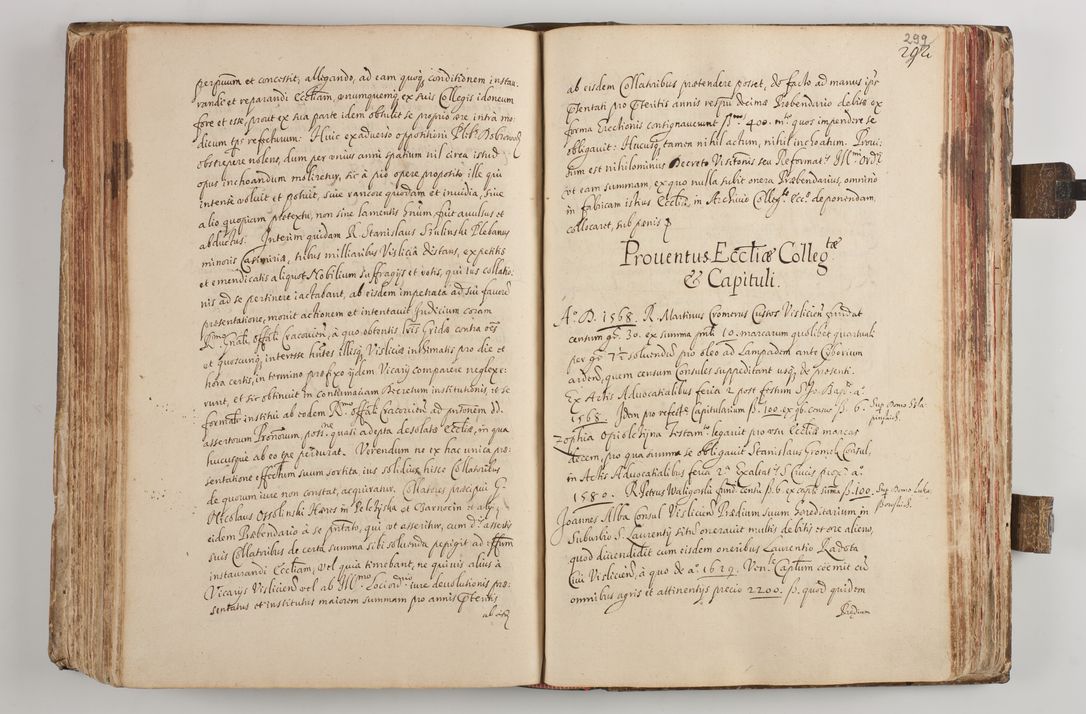 perpuum et concessit, allegando, ad eam quoq; conditionem instau:
randi et reparandi Eccliam, unumquemq; ex suis Collegis idoneum
fore et esse, prout ex sua parte idem obtulit se proprio ære intra mo:
dicum tps refecturum: Huic ex adverso oppositioni Plib:
obstrepere nolens, dum per unius anni spatium nil circa istud
opus inchoandum moliretur, sic à pio opere proposito ille qui
intense voluit et potuit, siue rancore quodam et inuidia, siue
alio quopiam prætextu, non sine lamentis hnum fuit auulsus et
abductus: Interim quidam R. Stanislaus Szulinski Plebanus
minoris Casimiria, tribus milliaribus Vislicia distans, expetitis
et emendicatis aliquot Nobilium suffragijs et votis, qui ius collatio:
nis ad se pertinere iactabant, ab eisdem impetrata ad sui fauorē
præsentatione, mouit actionem et intentauit Judicium coram
Rmo Gnali offāli Cracovien, à quo obtentis lris Crida contra oēs
et quoscunq; interesse hntes illisq; Visliciæ intimatis pro die et
hora certis, in termino præfixo ijdem Vicarij comparere neglexe:
runt, et sic obtinuit in contumaciam Decretum institutionis, et se
formalr institui ab eodem Rmo offāli Cracovien ad pntonem DD.
assertorum Pronorum, postne quasi adepta desolatæ Eccliæ, in qua
hucusque ab eo tpe perdurat. Verendum ne ex hac unica præ:
sentatione effectum suum sortita ius solidius hisce Collatribus
de quorum iure non constat, acquiratur. Collatores præcipui G.
Nicolaus Ossolinski Hæres in Pelczyska et Czarnocin et alij
eidem Præbendario à se pntato, qui ut asseritur, cum d. assertis
suis Collatribus de certa summa sibi soluenda pepigit ad effum
instaurandi Eccliam, vel quia timebant, ne quiuis alius à
Vicarijs Vislicien vel ab Illmo Loci ordrio iure deuolutionis præ:
sentatus et institutus maiorem summam pro annis Præteritis
ab eisd
299
292
ab eisdem Collatribus prætendere posset, de facto ad manus ipr
Præsentati pro Præteritis annis respu decimæ Præbendario debitæ ex
forma Erectionis consignauerunt sum 400. mr quos impendere se
obligauit: Hucusq; tamen nihil actum, nihil inchoatum. Proui:
sum est nihilominus Decreto Visitonis seu Reformats Illmi Ordi
ut eam summam ex quo nulla subit onera Præbendarius, omnino
in fabricam istius Eccliæ, in Archiuio Collegte Ecce deponendam,
collocaret, sub pœnis &
Prouentus Eccliæ Collegtæ
& Capituli.
Ao D. 1568. R. Martinus Cromerus Custos Vislicien fundat
censum gr. 30. ex summa pnli 10. marcarum quolibet quartuali
per gr 7½ soluendū pro oleo ad Lampadem ante Ciborium
arden, quem censum Consules suppeditant usq; de præsenti.
Ex Actis Aduocatialibus feria 2. post festum S. Jo. Bapt. ao
1568. Idem pro refecte Capitularium fl. 100. ex qb. census fl. 6.
Zophia Opiolchina testamr legauit pro usu Eccliæ marcas
decem, pro qua summa se obligauit Stanislaus Gromek Consul,
in Actis Aduocatialibus feria 2a Exaltats S. Crucis prox. ao
1580. R. Petrus Waligorski fund. censū fl. 6. ex captli suma fl. 100.
Joannes Alba Consul Vislicien Prædium suum hæreditarium in
Suburbio S. Laurentij sitū onerauit multis debitis et ære alieno,
quod diuendidit cum eisdem oneribus Laurentio Radota
Ciui Vislicien, à quo de ao 1629. Vent Captlum coemit cū
omnibus agris et attinentijs precio 2200. fl. quod quidem
Prædium
Sup. Domo
Sup Domo Luca